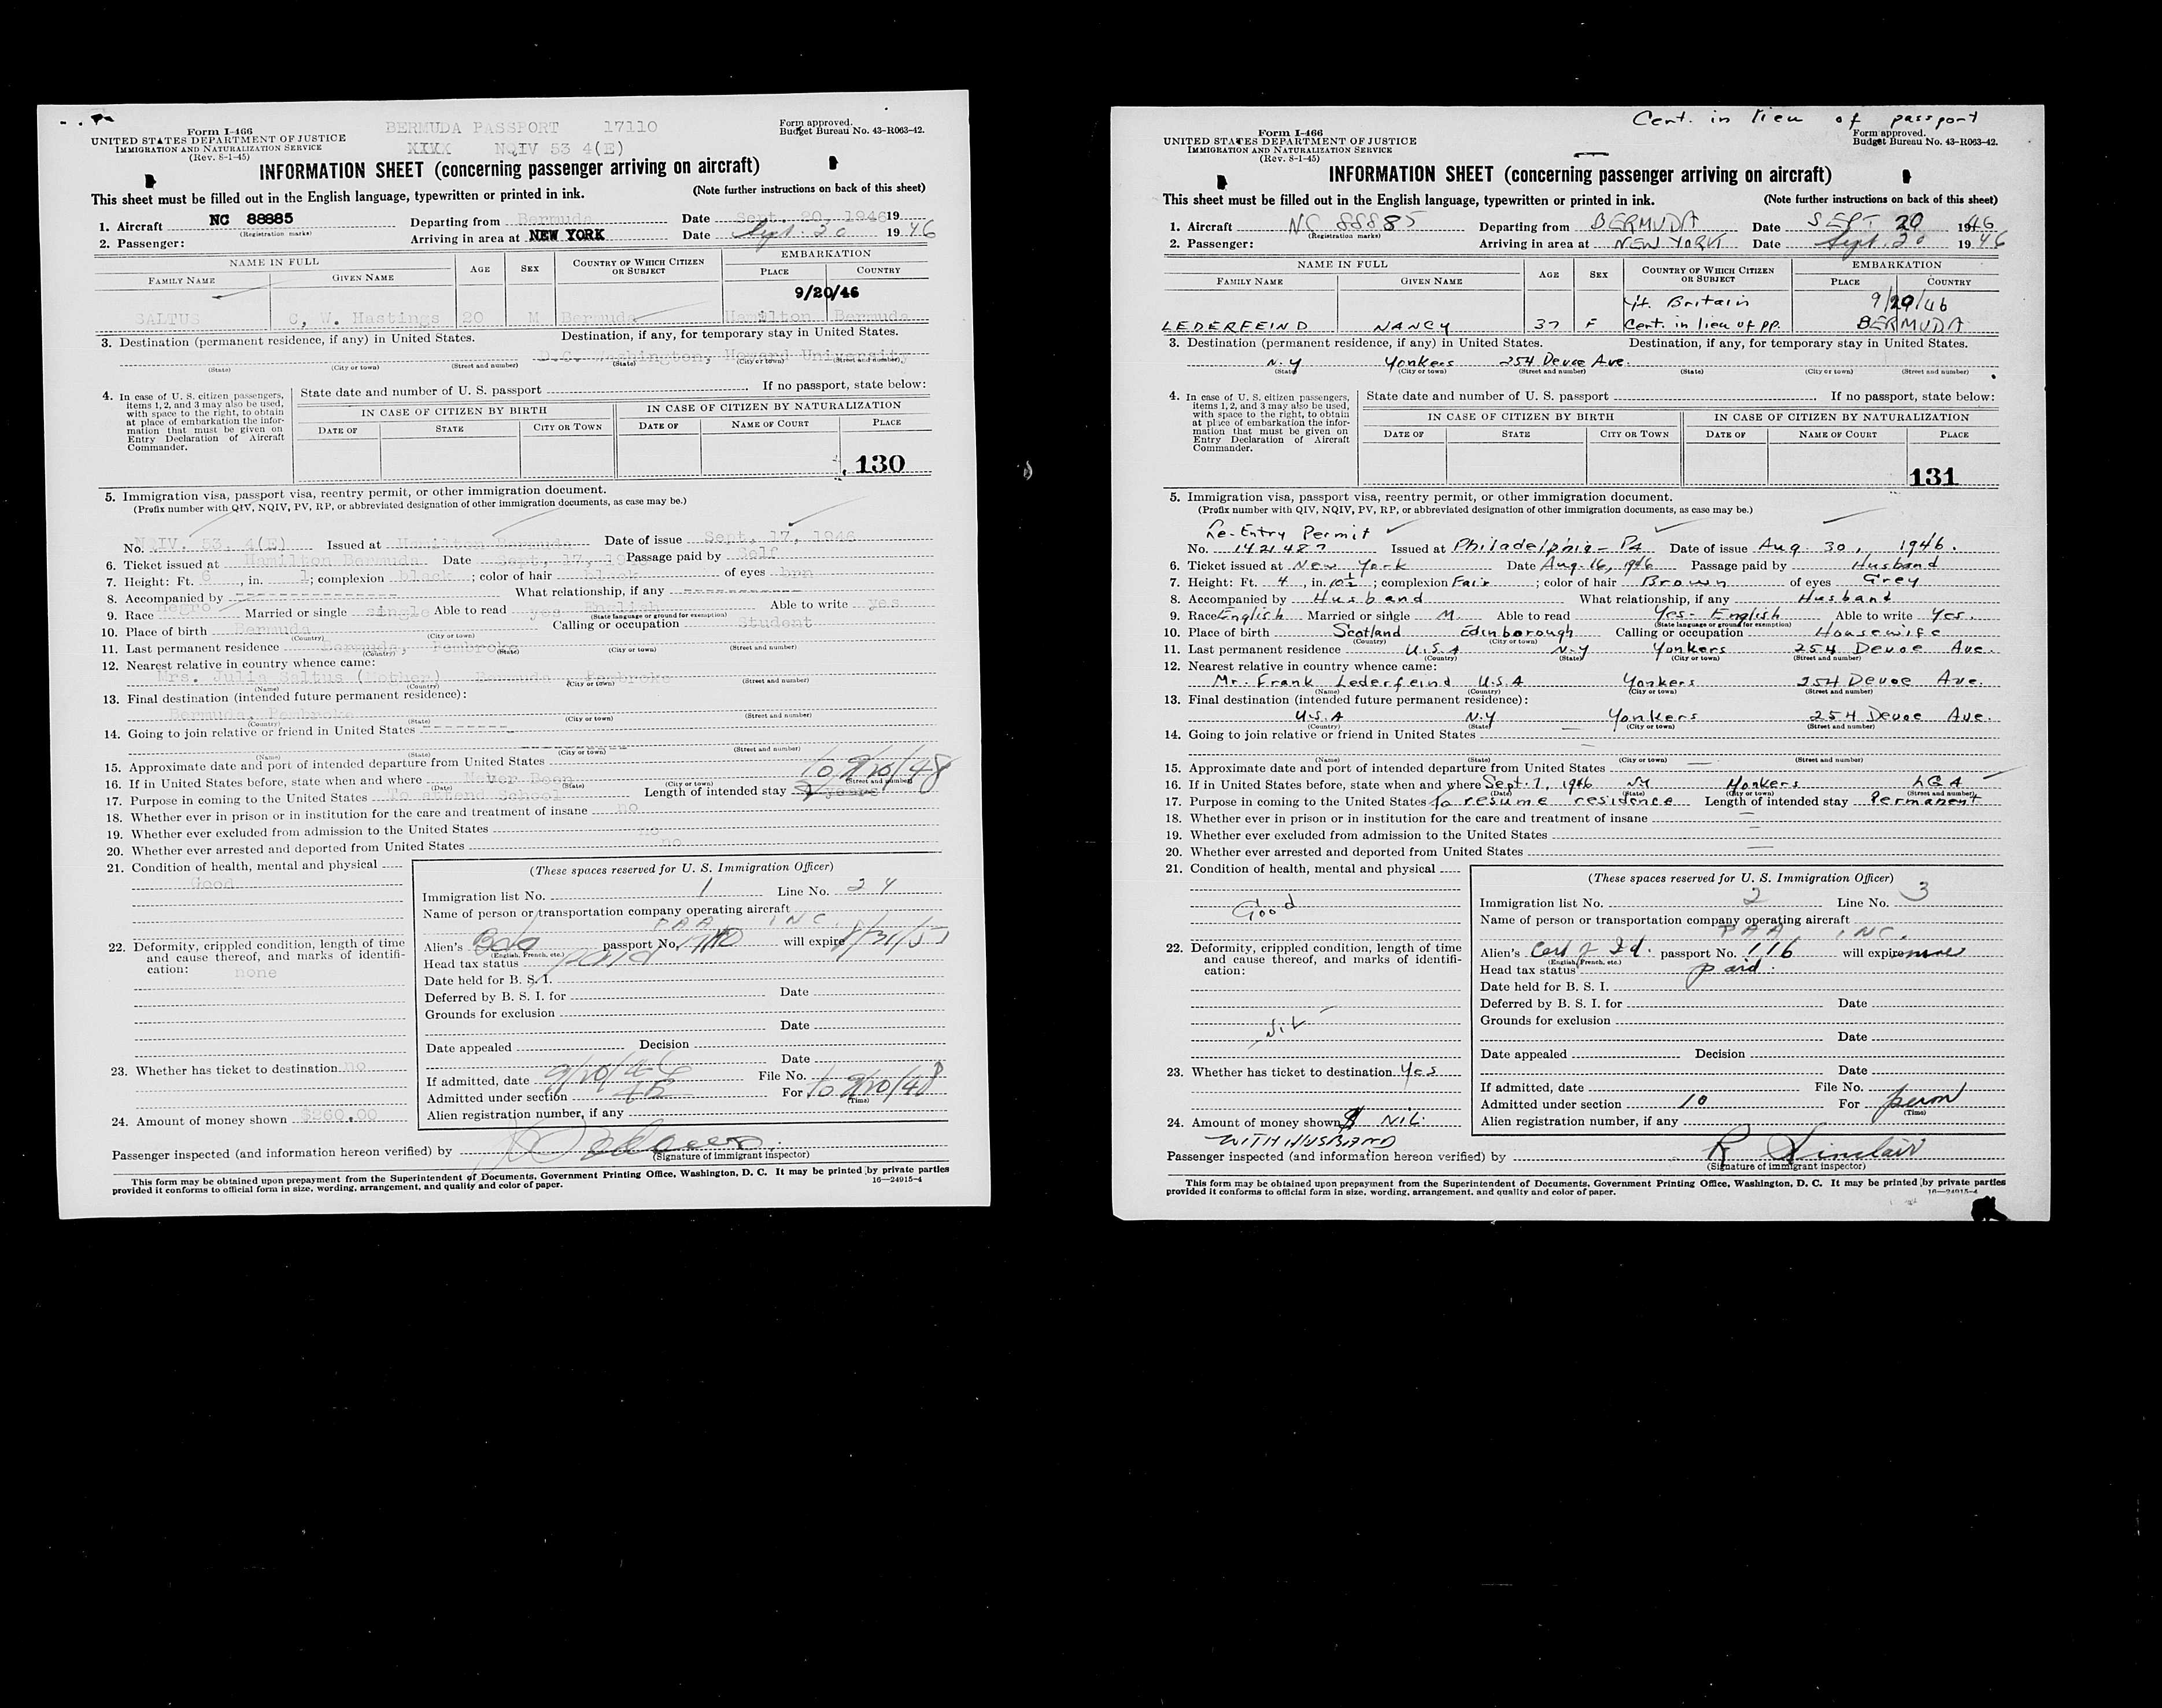 BERMUDA PASSPORT 17110
XXXX NQIV 53 4(E)
Form I-466
UNITED STATES DEPARTMENT OF JUSTICE
IMMIGRATION AND NATURALIZATION SERVICE
(Rev. 8-1-45)
Form approved.
Budget Bureau No. 43-R063-42.
INFORMATION SHEET (concerning passenger arriving on aircraft)
This sheet must be filled out in the English language, typewritten or printed in ink. (Note further instructions on back of this sheet)
1. Aircraft NC 88885 Departing from Bermuda Date Sept. 20, 1946 19
(Registration marks)
2. Passenger: Arriving in area at NEW YORK Date Sept. 20 1946
NAME IN FULL AGE SEX COUNTRY OF WHICH CITIZEN OR SUBJECT EMBARKATION
FAMILY NAME GIVEN NAME PLACE COUNTRY
9/20/46
SALTUS C. W. Hastings 20 M Bermuda Hamilton Bermuda
3. Destination (permanent residence, if any) in United States. Destination, if any, for temporary stay in United States.
D.C. Washington, Howard University
(State) (City or town) (Street and number) (State) (City or town) (Street and number)
4. In case of U. S. citizen passengers, items 1, 2, and 3 may also be used, with space to the right, to obtain at place of embarkation the information that must be given on Entry Declaration of Aircraft Commander.
State date and number of U. S. passport If no passport, state below:
IN CASE OF CITIZEN BY BIRTH IN CASE OF CITIZEN BY NATURALIZATION
DATE OF STATE CITY OR TOWN DATE OF NAME OF COURT PLACE
130
5. Immigration visa, passport visa, reentry permit, or other immigration document.
(Prefix number with QIV, NQIV, PV, RP, or abbreviated designation of other immigration documents, as case may be.)
No. NQIV. 53, 4(E) Issued at Hamilton Bermuda Date of issue Sept. 17, 1946
6. Ticket issued at Hamilton Bermuda Date Sept. 17, 19 Passage paid by Self
7. Height: Ft. 6, in. 1; complexion black; color of hair black of eyes brn
8. Accompanied by What relationship, if any
9. Race Negro Married or single single Able to read yes English Able to write yes
(State language or ground for exemption)
10. Place of birth Bermuda Calling or occupation Student
(Country) (City or town)
11. Last permanent residence Bermuda, Pembroke
(Country) (State) (City or town) (Street and number)
12. Nearest relative in country whence came:
Mrs. Julia Saltus (Mother) Bermuda Pembroke
(Name) (Country) (City or town) (Street and number)
13. Final destination (intended future permanent residence):
Bermuda, Pembroke
(Country) (State) (City or town) (Street and number)
14. Going to join relative or friend in United States
(Name) (State) (City or town) (Street and number)
15. Approximate date and port of intended departure from United States
16. If in United States before, state when and where Never Been to 9/20/48
(Date) (State) (City or town) (Street and number)
17. Purpose in coming to the United States To attend School Length of intended stay years
18. Whether ever in prison or in institution for the care and treatment of insane no
19. Whether ever excluded from admission to the United States no
20. Whether ever arrested and deported from United States no
21. Condition of health, mental and physical
Good
22. Deformity, crippled condition, length of time and cause thereof, and marks of identification:
none
23. Whether has ticket to destination no
24. Amount of money shown $260.00
(These spaces reserved for U. S. Immigration Officer)
Immigration list No. 1 Line No. 24
Name of person or transportation company operating aircraft
PAA INC.
Alien's passport No. will expire
(English, French, etc.)
Head tax status paid
Date held for B. S. I.
Deferred by B. S. I. for Date
Grounds for exclusion
Date
Date appealed Decision
Date
If admitted, date 9/20/46 File No.
Admitted under section For to 9/20/48
(Time)
Alien registration number, if any
Passenger inspected (and information hereon verified) by
(Signature of immigrant inspector)
This form may be obtained upon prepayment from the Superintendent of Documents, Government Printing Office, Washington, D. C. It may be printed by private parties
provided it conforms to official form in size, wording, arrangement, and quality and color of paper. 16—24915-4
Cert. in lieu of passport
Form I-466
UNITED STATES DEPARTMENT OF JUSTICE
IMMIGRATION AND NATURALIZATION SERVICE
(Rev. 8-1-45)
Form approved.
Budget Bureau No. 43-R063-42.
INFORMATION SHEET (concerning passenger arriving on aircraft)
This sheet must be filled out in the English language, typewritten or printed in ink. (Note further instructions on back of this sheet)
1. Aircraft NC 88885 Departing from BERMUDA Date SEPT 20 1946
(Registration marks)
2. Passenger: Arriving in area at NEW YORK Date Sept. 20 1946
NAME IN FULL AGE SEX COUNTRY OF WHICH CITIZEN OR SUBJECT EMBARKATION
FAMILY NAME GIVEN NAME PLACE COUNTRY
Gt. Britain 9/20/46
LEDERFEIND NANCY 37 F Cert. in lieu of pp. BERMUDA
3. Destination (permanent residence, if any) in United States. Destination, if any, for temporary stay in United States.
N.Y Yonkers 254 Devoe Ave.
(State) (City or town) (Street and number) (State) (City or town) (Street and number)
4. In case of U. S. citizen passengers, items 1, 2, and 3 may also be used, with space to the right, to obtain at place of embarkation the information that must be given on Entry Declaration of Aircraft Commander.
State date and number of U. S. passport If no passport, state below:
IN CASE OF CITIZEN BY BIRTH IN CASE OF CITIZEN BY NATURALIZATION
DATE OF STATE CITY OR TOWN DATE OF NAME OF COURT PLACE
131
5. Immigration visa, passport visa, reentry permit, or other immigration document.
(Prefix number with QIV, NQIV, PV, RP, or abbreviated designation of other immigration documents, as case may be.)
Re-Entry Permit
No. 1421487 Issued at Philadelphia - PA Date of issue Aug 30, 1946.
6. Ticket issued at New York Date Aug. 16, 1946 Passage paid by Husband
7. Height: Ft. 4, in. 10½; complexion Fair; color of hair Brown of eyes Grey
8. Accompanied by Husband What relationship, if any Husband
9. Race English Married or single M. Able to read Yes - English Able to write Yes.
(State language or ground for exemption)
10. Place of birth Scotland Edinborough Calling or occupation Housewife
(Country) (City or town)
11. Last permanent residence U.S.A N.Y Yonkers 254 Devoe Ave.
(Country) (State) (City or town) (Street and number)
12. Nearest relative in country whence came:
Mr. Frank Lederfeind U.S.A Yonkers 254 Devoe Ave.
(Name) (Country) (City or town) (Street and number)
13. Final destination (intended future permanent residence):
U.S.A N.Y Yonkers 254 Devoe Ave.
(Country) (State) (City or town) (Street and number)
14. Going to join relative or friend in United States
(Name) (State) (City or town) (Street and number)
15. Approximate date and port of intended departure from United States
16. If in United States before, state when and where Sept. 7, 1946 NY Yonkers LGA
(Date) (State) (City or town) (Street and number)
17. Purpose in coming to the United States To resume residence Length of intended stay Permanent
18. Whether ever in prison or in institution for the care and treatment of insane
19. Whether ever excluded from admission to the United States
20. Whether ever arrested and deported from United States
21. Condition of health, mental and physical
Good
22. Deformity, crippled condition, length of time and cause thereof, and marks of identification:
Nil
23. Whether has ticket to destination Yes
24. Amount of money shown $ NIL
WITH HUSBAND
(These spaces reserved for U. S. Immigration Officer)
Immigration list No. 2 Line No. 3
Name of person or transportation company operating aircraft
PAA INC.
Alien's Cert of Id. passport No. 116 will expire
(English, French, etc.)
Head tax status paid.
Date held for B. S. I.
Deferred by B. S. I. for Date
Grounds for exclusion
Date
Date appealed Decision
Date
If admitted, date File No.
Admitted under section 10 For perm
(Time)
Alien registration number, if any
Passenger inspected (and information hereon verified) by R Sinclair
(Signature of immigrant inspector)
This form may be obtained upon prepayment from the Superintendent of Documents, Government Printing Office, Washington, D. C. It may be printed by private parties
provided it conforms to official form in size, wording, arrangement, and quality and color of paper. 16—24915-4